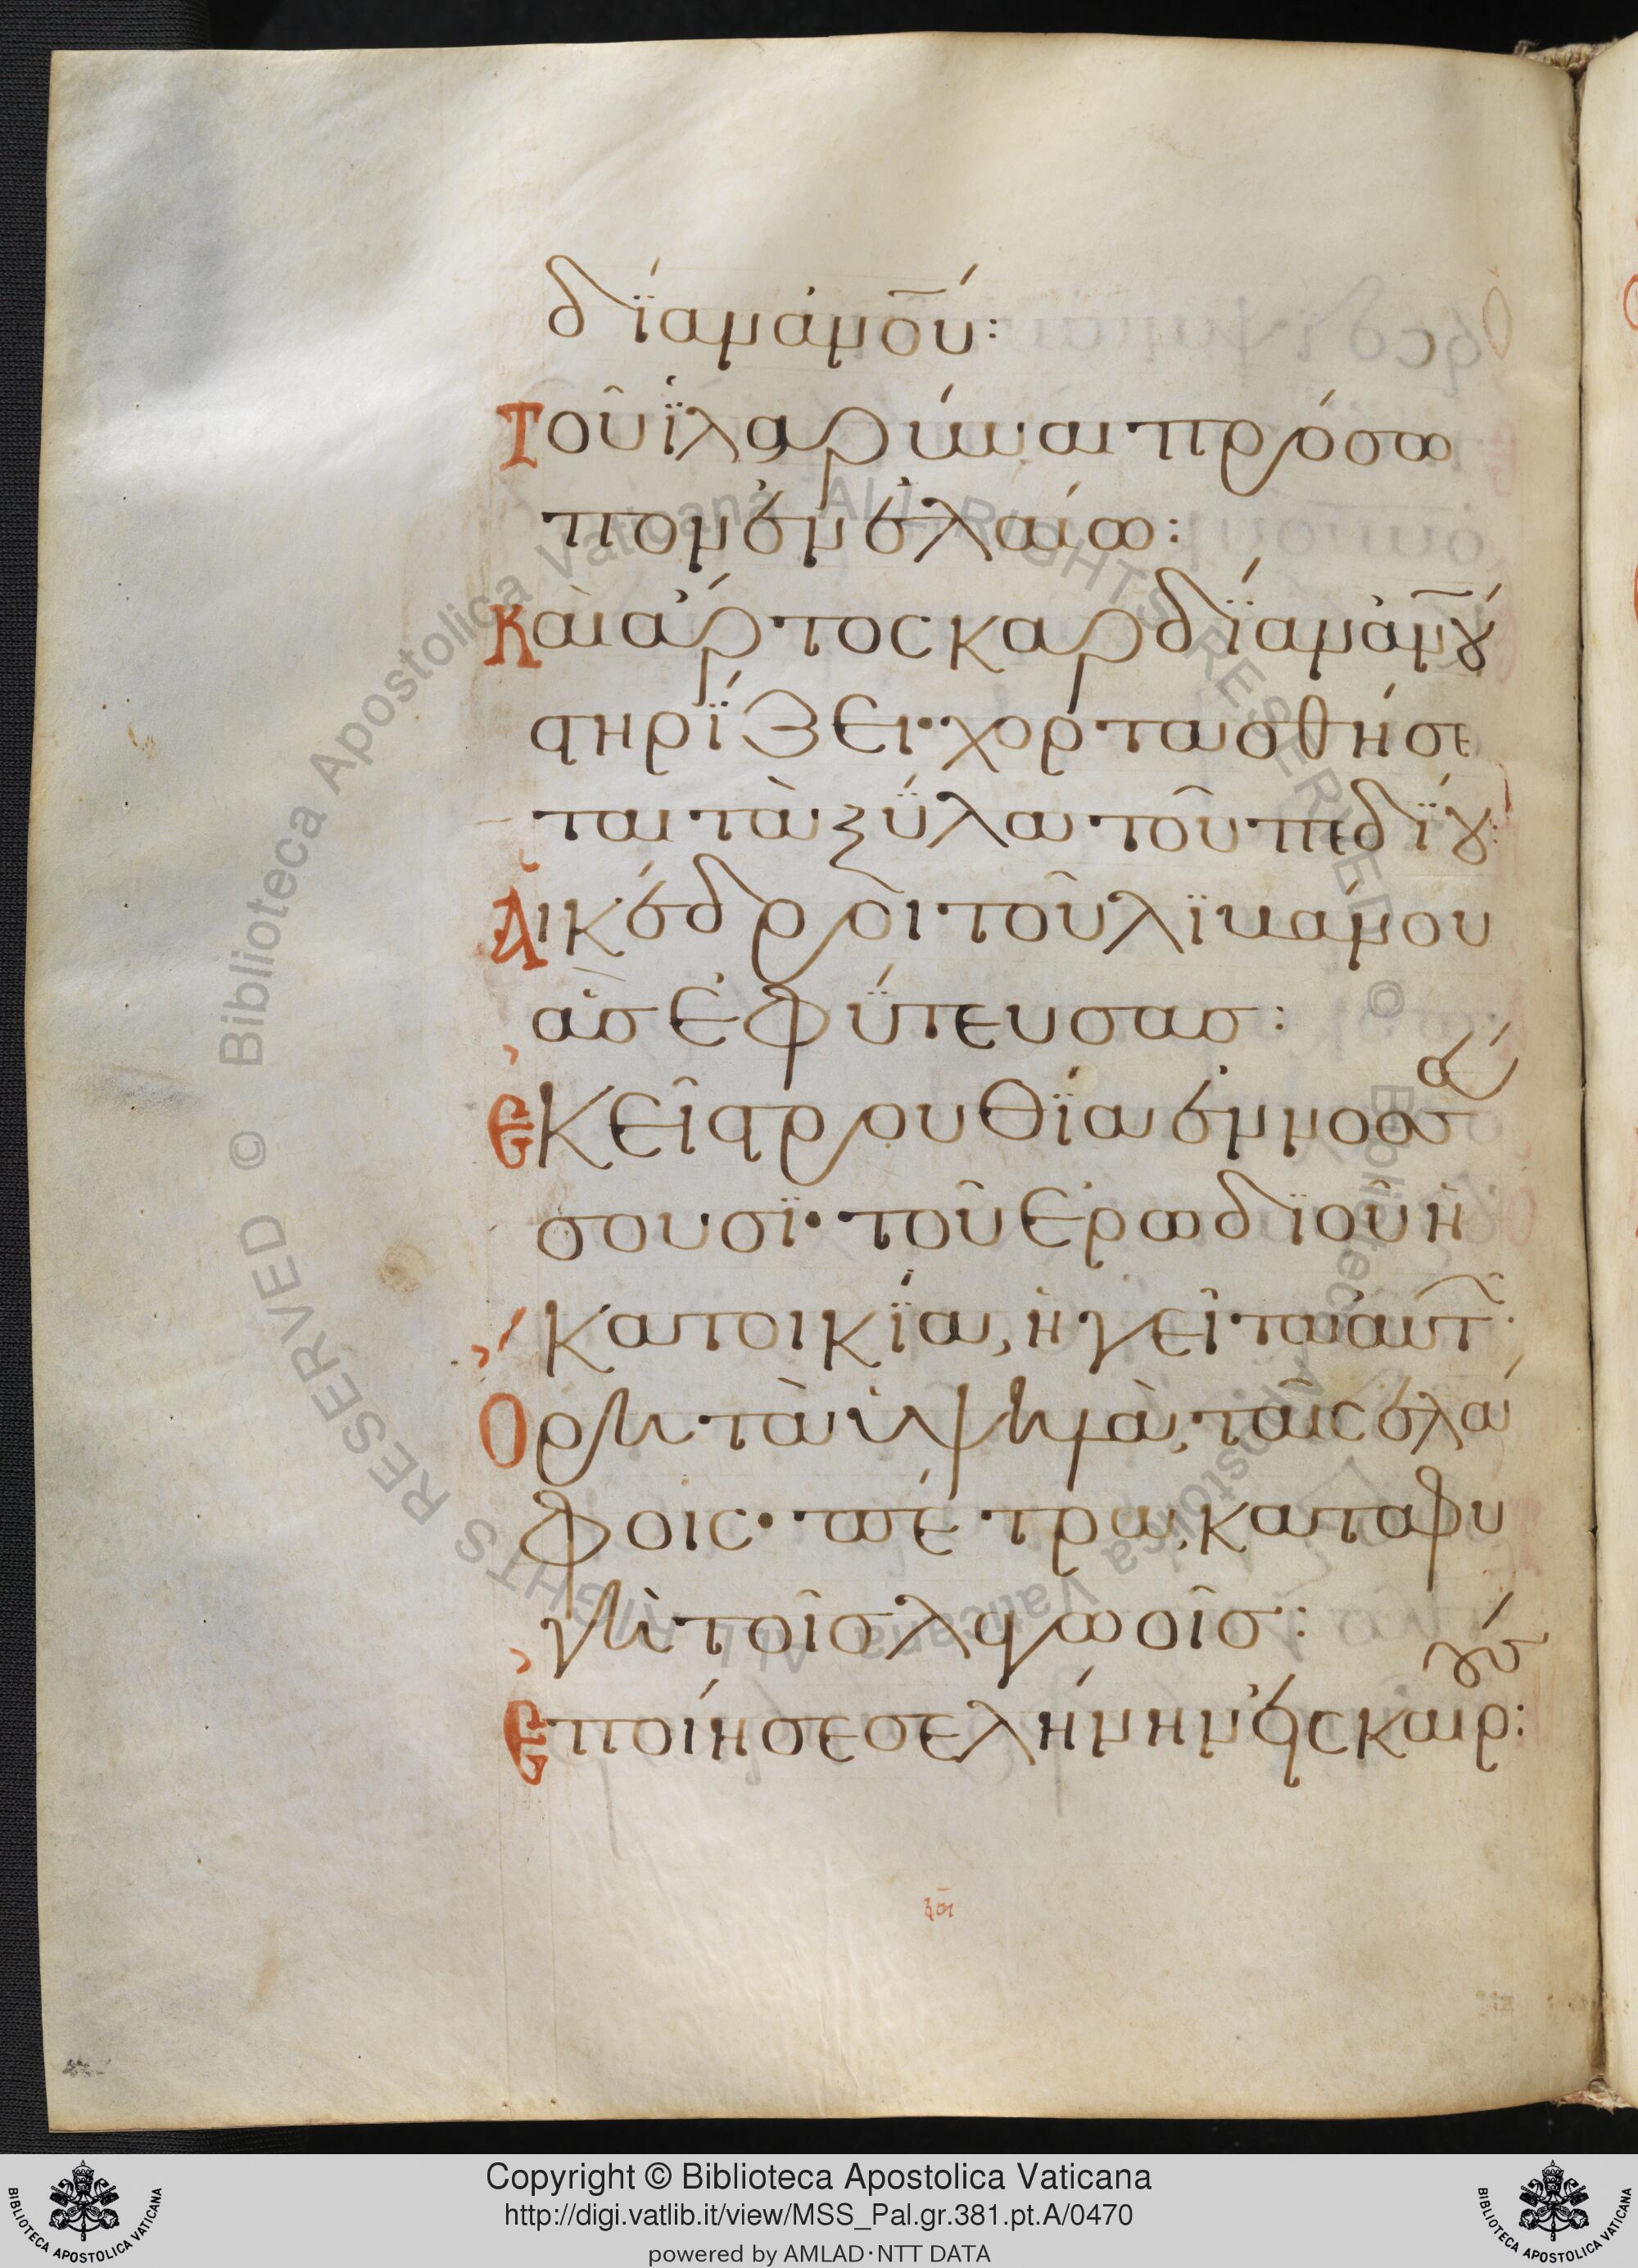 δΐαν ἀνοῦ:
Τοῦ ϊλαρύναι πρόσω
πον ἐν ἐλαίω:
Καὶ ἄρτος καρδΐαν ἀνου
στηρΐζει· χορτασθήσε
ται τὰ ξΰλα τοῦ πεδΐου:
Αἱ κέδροι τοῦ λϊβάνου
ἃσ ἐφΰτευσασ:
Ἐκεῖ στρουθΐα ἐννοσσ
σουσϊ· τοῦ ἐρωδϊοῦ ἡ
κατοικΐα, ἡγεῖται αὐτ·
Ὄρη τὰ ὑψηλὰ, ταῖς ἐλά
φοις· πέτρα, καταφυ
γὴ τοῖσ λαγωοῖσ:
Ἐποίησε σελήνην εἰς καιρ:
Copyright © Biblioteca Apostolica Vaticana
http://digi.vatlib.it/view/MSS_Pal.gr.381.pt.A/0470
powered by AMLAD·NTT DATA
BIBLIOTECA APOSTOLICA VATICANA
BIBLIOTECA APOSTOLICA VATICANA